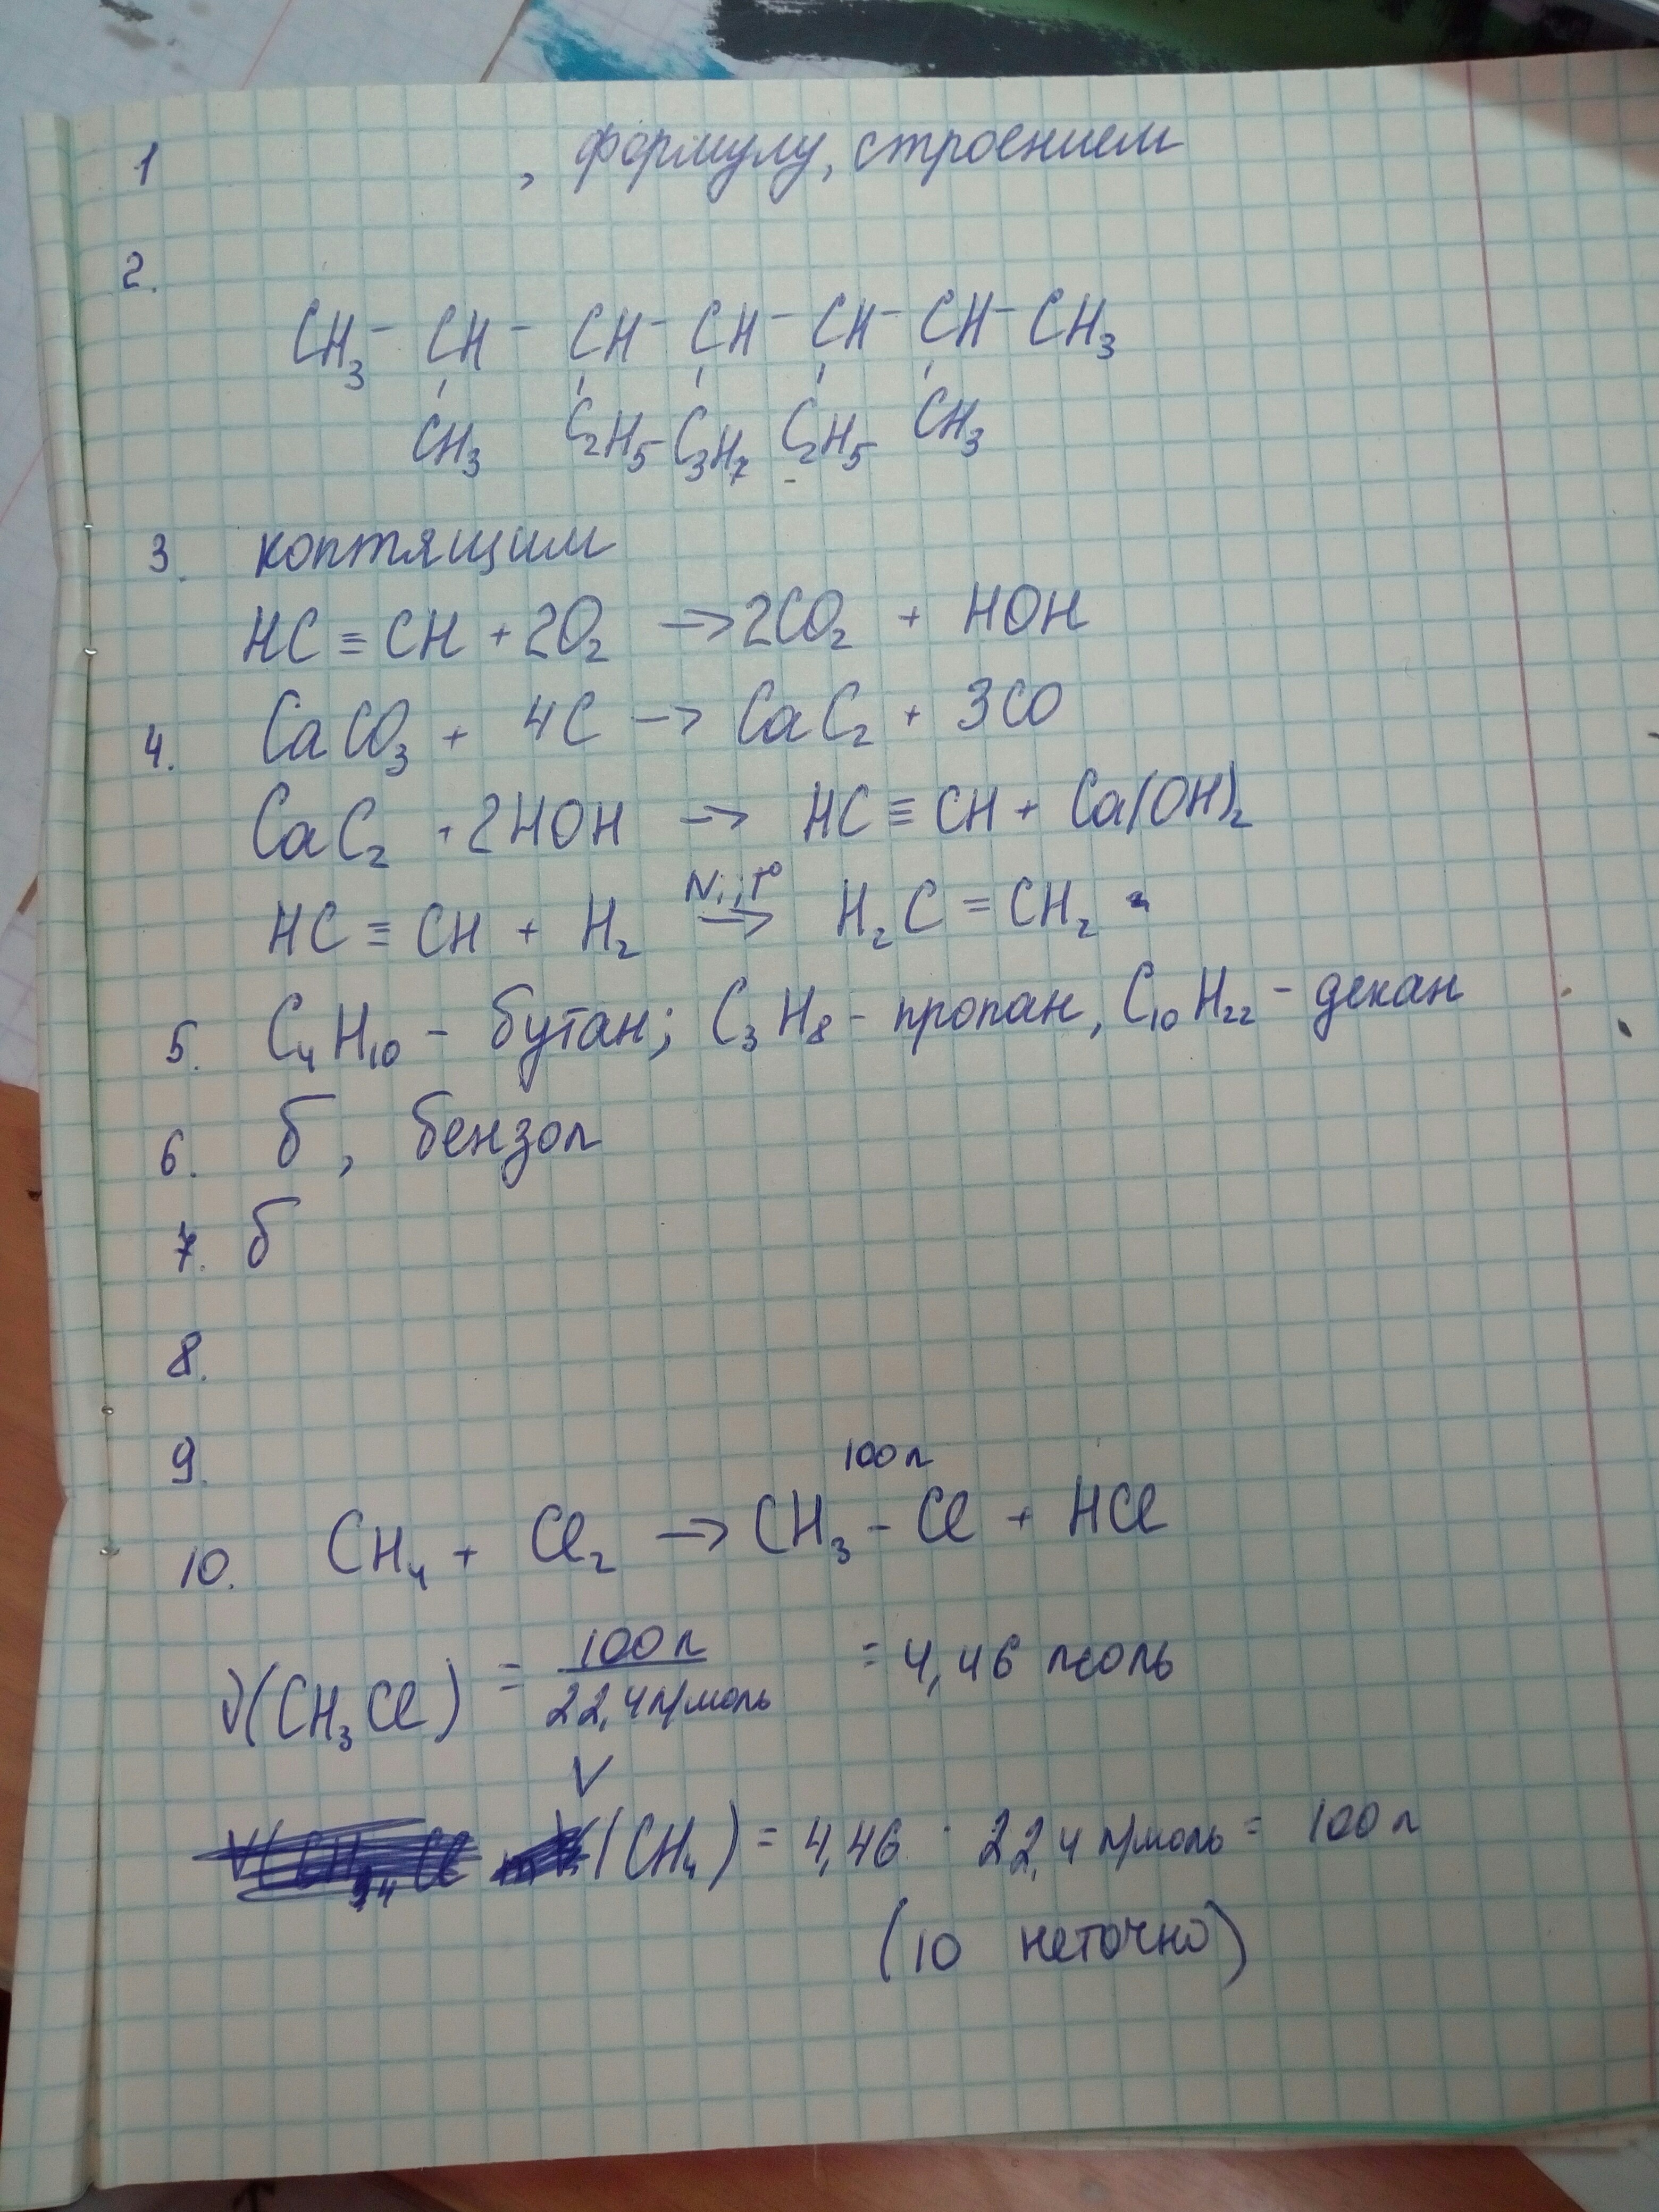 1 , формулу, строением
2.
CH₃ - CH - CH - CH - CH - CH - CH₃
CH₃ C₂H₅ C₃H₇ C₂H₅ CH₃
3. коптящим
HC ≡ CH + 2O₂ → 2CO₂ + HOH
4. CaCO₃ + 4C → CaC₂ + 3CO
CaC₂ + 2HOH → HC ≡ CH + Ca(OH)₂
Ni, t°
HC ≡ CH + H₂ → H₂C = CH₂
5. C₄H₁₀ - бутан; C₃H₈ - пропан, C₁₀H₂₂ - декан
6. б, бензол
7. б
8.
9.
100 л
10. CH₄ + Cl₂ → CH₃ - Cl + HCl
ν(CH₃Cl) = 100 л / 22,4 л/моль = 4,46 моль
V (CH₄) = 4,46 · 22,4 л/моль = 100 л
(10 неточно)